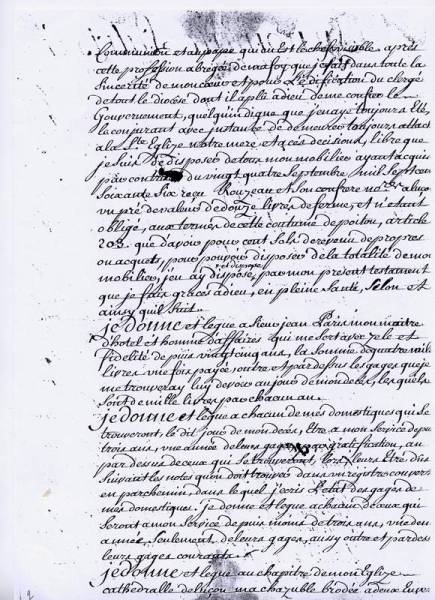 Communion et au pape qui en est le chef visible après
cette profession abregée de ma foy que je fais dans toute la
sincerité de mon coeur et pour l'édification du clergé
de tout le diocese dont il a plû a dieu de me confier le
Gouvernement, quelqu'indigne que j'en aye toujours Eté,
le conjurant avec instance de demeurer toujours attaché
a la Ste Eglize notre mere et a ces decisions, libre que
je suis de disposer de tous mon mobilier ayant acquis
par contrat du vingt quatre Septembre mil Sept cent
Soixante Six reçu Rouzeau et Son confrere
un pré de valeur de douze livres de ferme, et n'etant
obligé, aux termes de cette coutume de poitou, article
203. que d'avoir pour cent Sols de revenu de propres
ou acquets, pour pouvoir disposer de la totalité de mon
mobilier, j'en ay disposé, et dispose par mon present testament
que je fais graces a dieu, en pleine Santé, Selon et
ainsy qu'il Suit.
je donne et legue a Sieur jean Paris mon maitre
d'hotel et homme d'affaires qui me Sert avec zele et
fidelité depuis vingt cinq ans, la Somme de quatre mille
livres une fois payée, outre et par dessus les gages que je
me trouveray luy devoir au jour de mon decés, lesquels
Sont de mille livres par chacun an.
je donne et legue a chacun de mes domestiques qui Se
trouveront, le dit jour de mon decés, Etre a mon Service depuis
trois ans, une année de leurs gages par gratification, au
par dessus de ceux qui Se trouveront, lors, leurs Etre dûs
Suivant les notes qu'on doit trouver dans un registre couvert
en parchemin, dans lequel j'ecris L'etat des gages de
mes domestiques. je donne et legue a chacun de ceux qui
Seront a mon Service depuis moins de trois ans, une demi
année, Seulement, de leurs gages, aussy outre et par dessus
leurs gages courants.
je donne et legue au chapitre de mon Eglize
cathedralle de luçon ma chazuble brodée a deux Envers